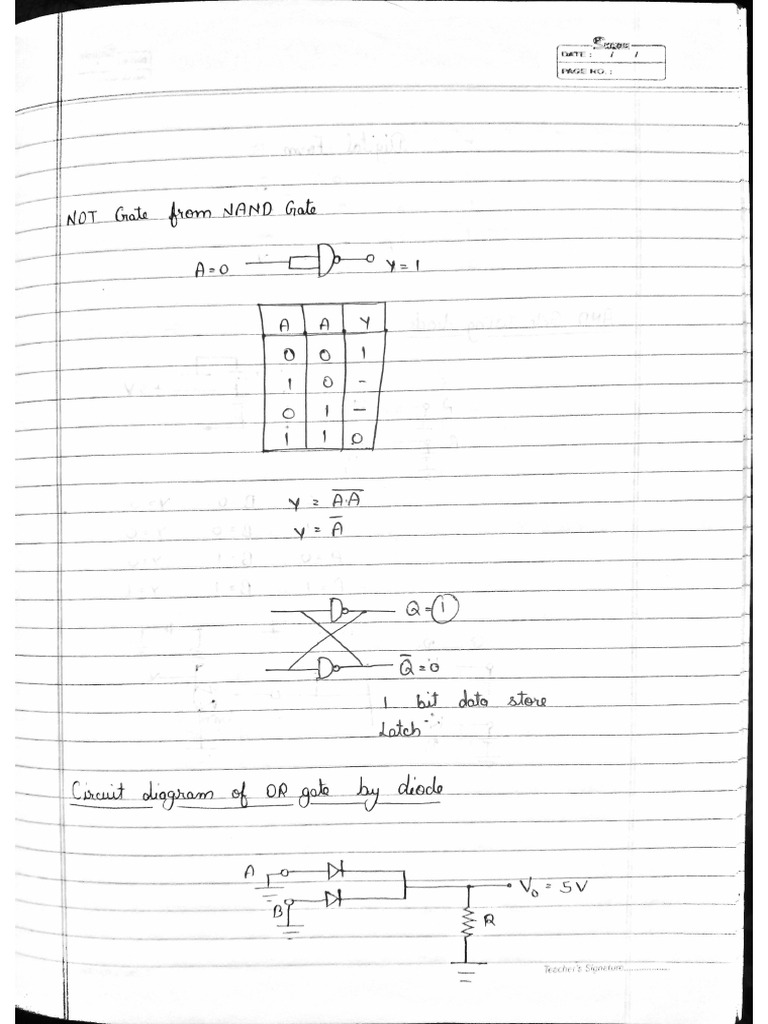 DATE : / /
PAGE NO. :
NOT Gate from NAND Gate
A=0 Y=1
A A Y
0 0 1
1 0 -
0 1 -
1 1 0
Y = \overline{A.A}
Y = \overline{A}
Q = 1
\overline{Q} = 0
1 bit data store
Latch
Circuit diagram of OR gate by diode
A
V₀ = 5V
B
R
Teacher's Signature